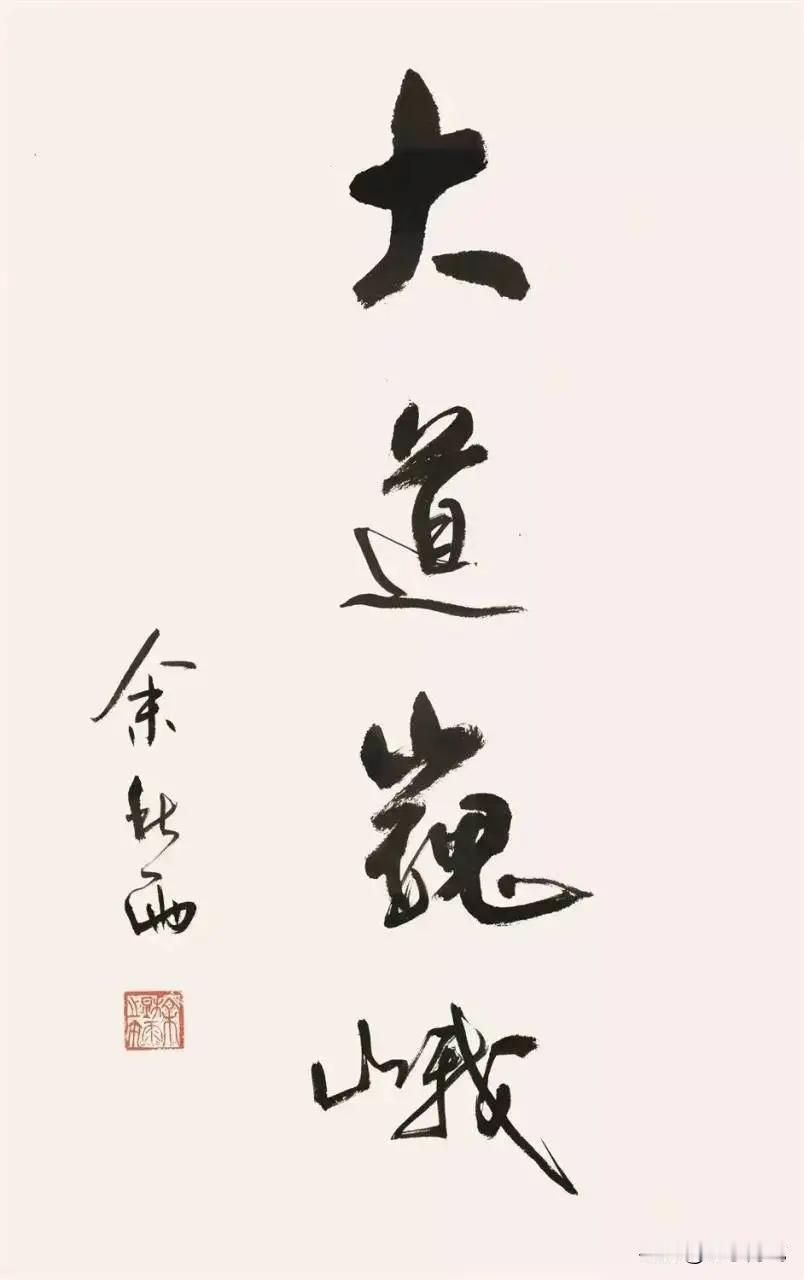 大道巍峨
余秋雨